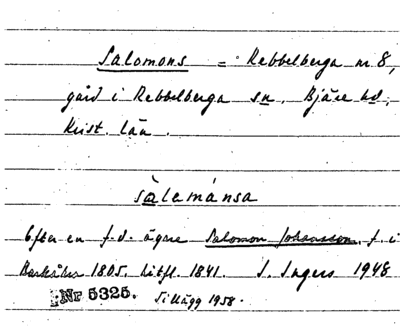 Salomons = Rebbelberga nr 8,
gård i Rebbelberga sn, Bjäre hd,
Krist. län.
sàlemánsa
Efter en f.d. ägare Salomon Johansson, f. i
Barkåkra 1805. Utfl. 1841. I. Ingers 1948
Nr 5325. Tillägg 1958.